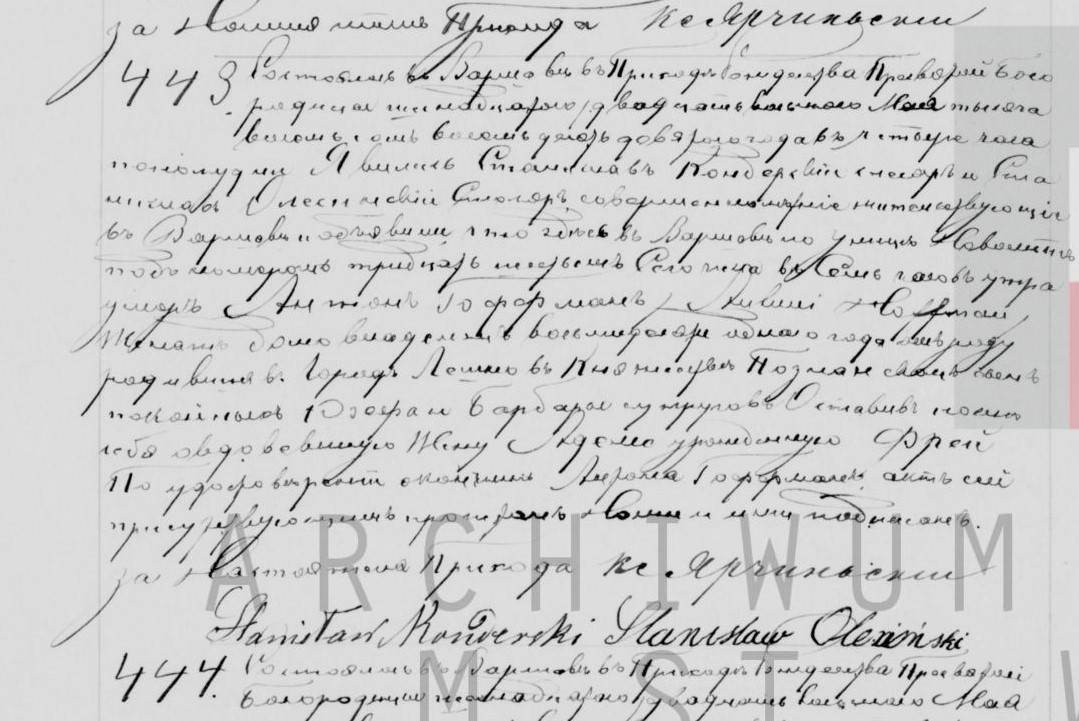 за Настоятеля Прихода Кс Ярчиньскiи
443 Состоялось въ Варшавѣ въ Приходѣ Рождества Пресвятой Бого
родицы шестнадцатаго /двадцать восьмаго Мая тысяча
восемь сотъ восемьдесятъ девятаго года въ четыре часа
пополудни Явились Станиславъ Кондерскiй слесарь и Ста
ниславъ Олесинскiй Столяръ совершеннолѣтнiе жительствующiе
въ Варшавѣ и объявили что здѣсь въ Варшавѣ по улицѣ Новолипiе
подъ номеромъ тридцать шестымъ Сего числа въ Семь часовъ утра
умеръ Антонъ Гофманъ / Antoni Hoffman /
Женатъ домовладѣлецъ восьмидесяти одного года отъ роду
родившiйся въ Городѣ въ Княжествѣ Познанскомъ сынъ
покойныхъ Юзефа и Барбары супруговъ Оставивъ послѣ
себя овдовѣвшую Жену урожденную Фрей
По удостовѣренiи о кончинѣ Антона Гофмана актъ сей
присутствующимъ прочитанъ Нами и ими подписанъ.
за Настоятеля Прихода Кс Ярчиньскiи
Stanisław Konderski Stanisław Olesiński
444. Состоялось въ Варшавѣ въ Приходѣ Рождества Пресвятой
Богородицы шестнадцатаго /двадцать восьмаго Мая
ARCHIWUM
M ST W